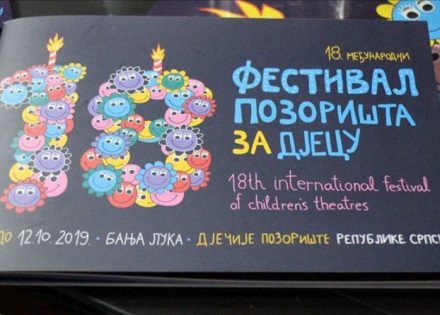 18. МЕЂУНАРОДНИ
ФЕСТИВАЛ
ПОЗОРИШТА
ЗА ДЈЕЦУ
18th international festival
of children's theatres
ДО 12.10.2019. • БАЊА ЛУКА • ДЈЕЧИЈЕ ПОЗОРИШТЕ РЕПУБЛИКЕ